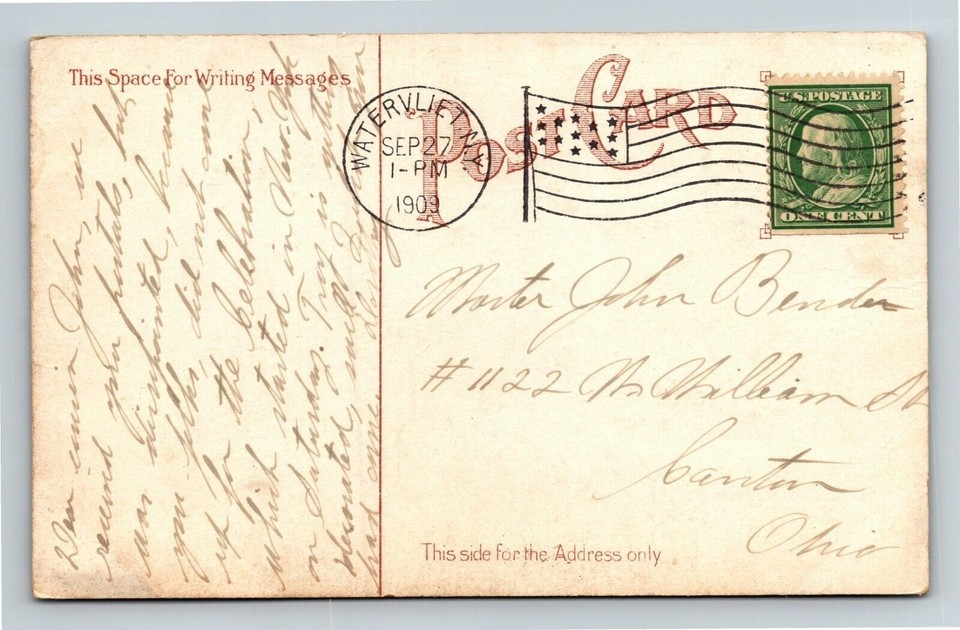 This Space For Writing Messages
POST CARD
WATERVLIET N.Y.
SEP 27
1-PM
1909
U.S. POSTAGE
ONE CENT
Dear cousin John, we
received your postals, but
was disappointed because
you folks did not come
up for the Celebration,
which started in New York
on Saturday. Troy is quite
decorated,
had one.
Master John Bender
# 1122 N. William St
Canton
Ohio
This side for the Address only